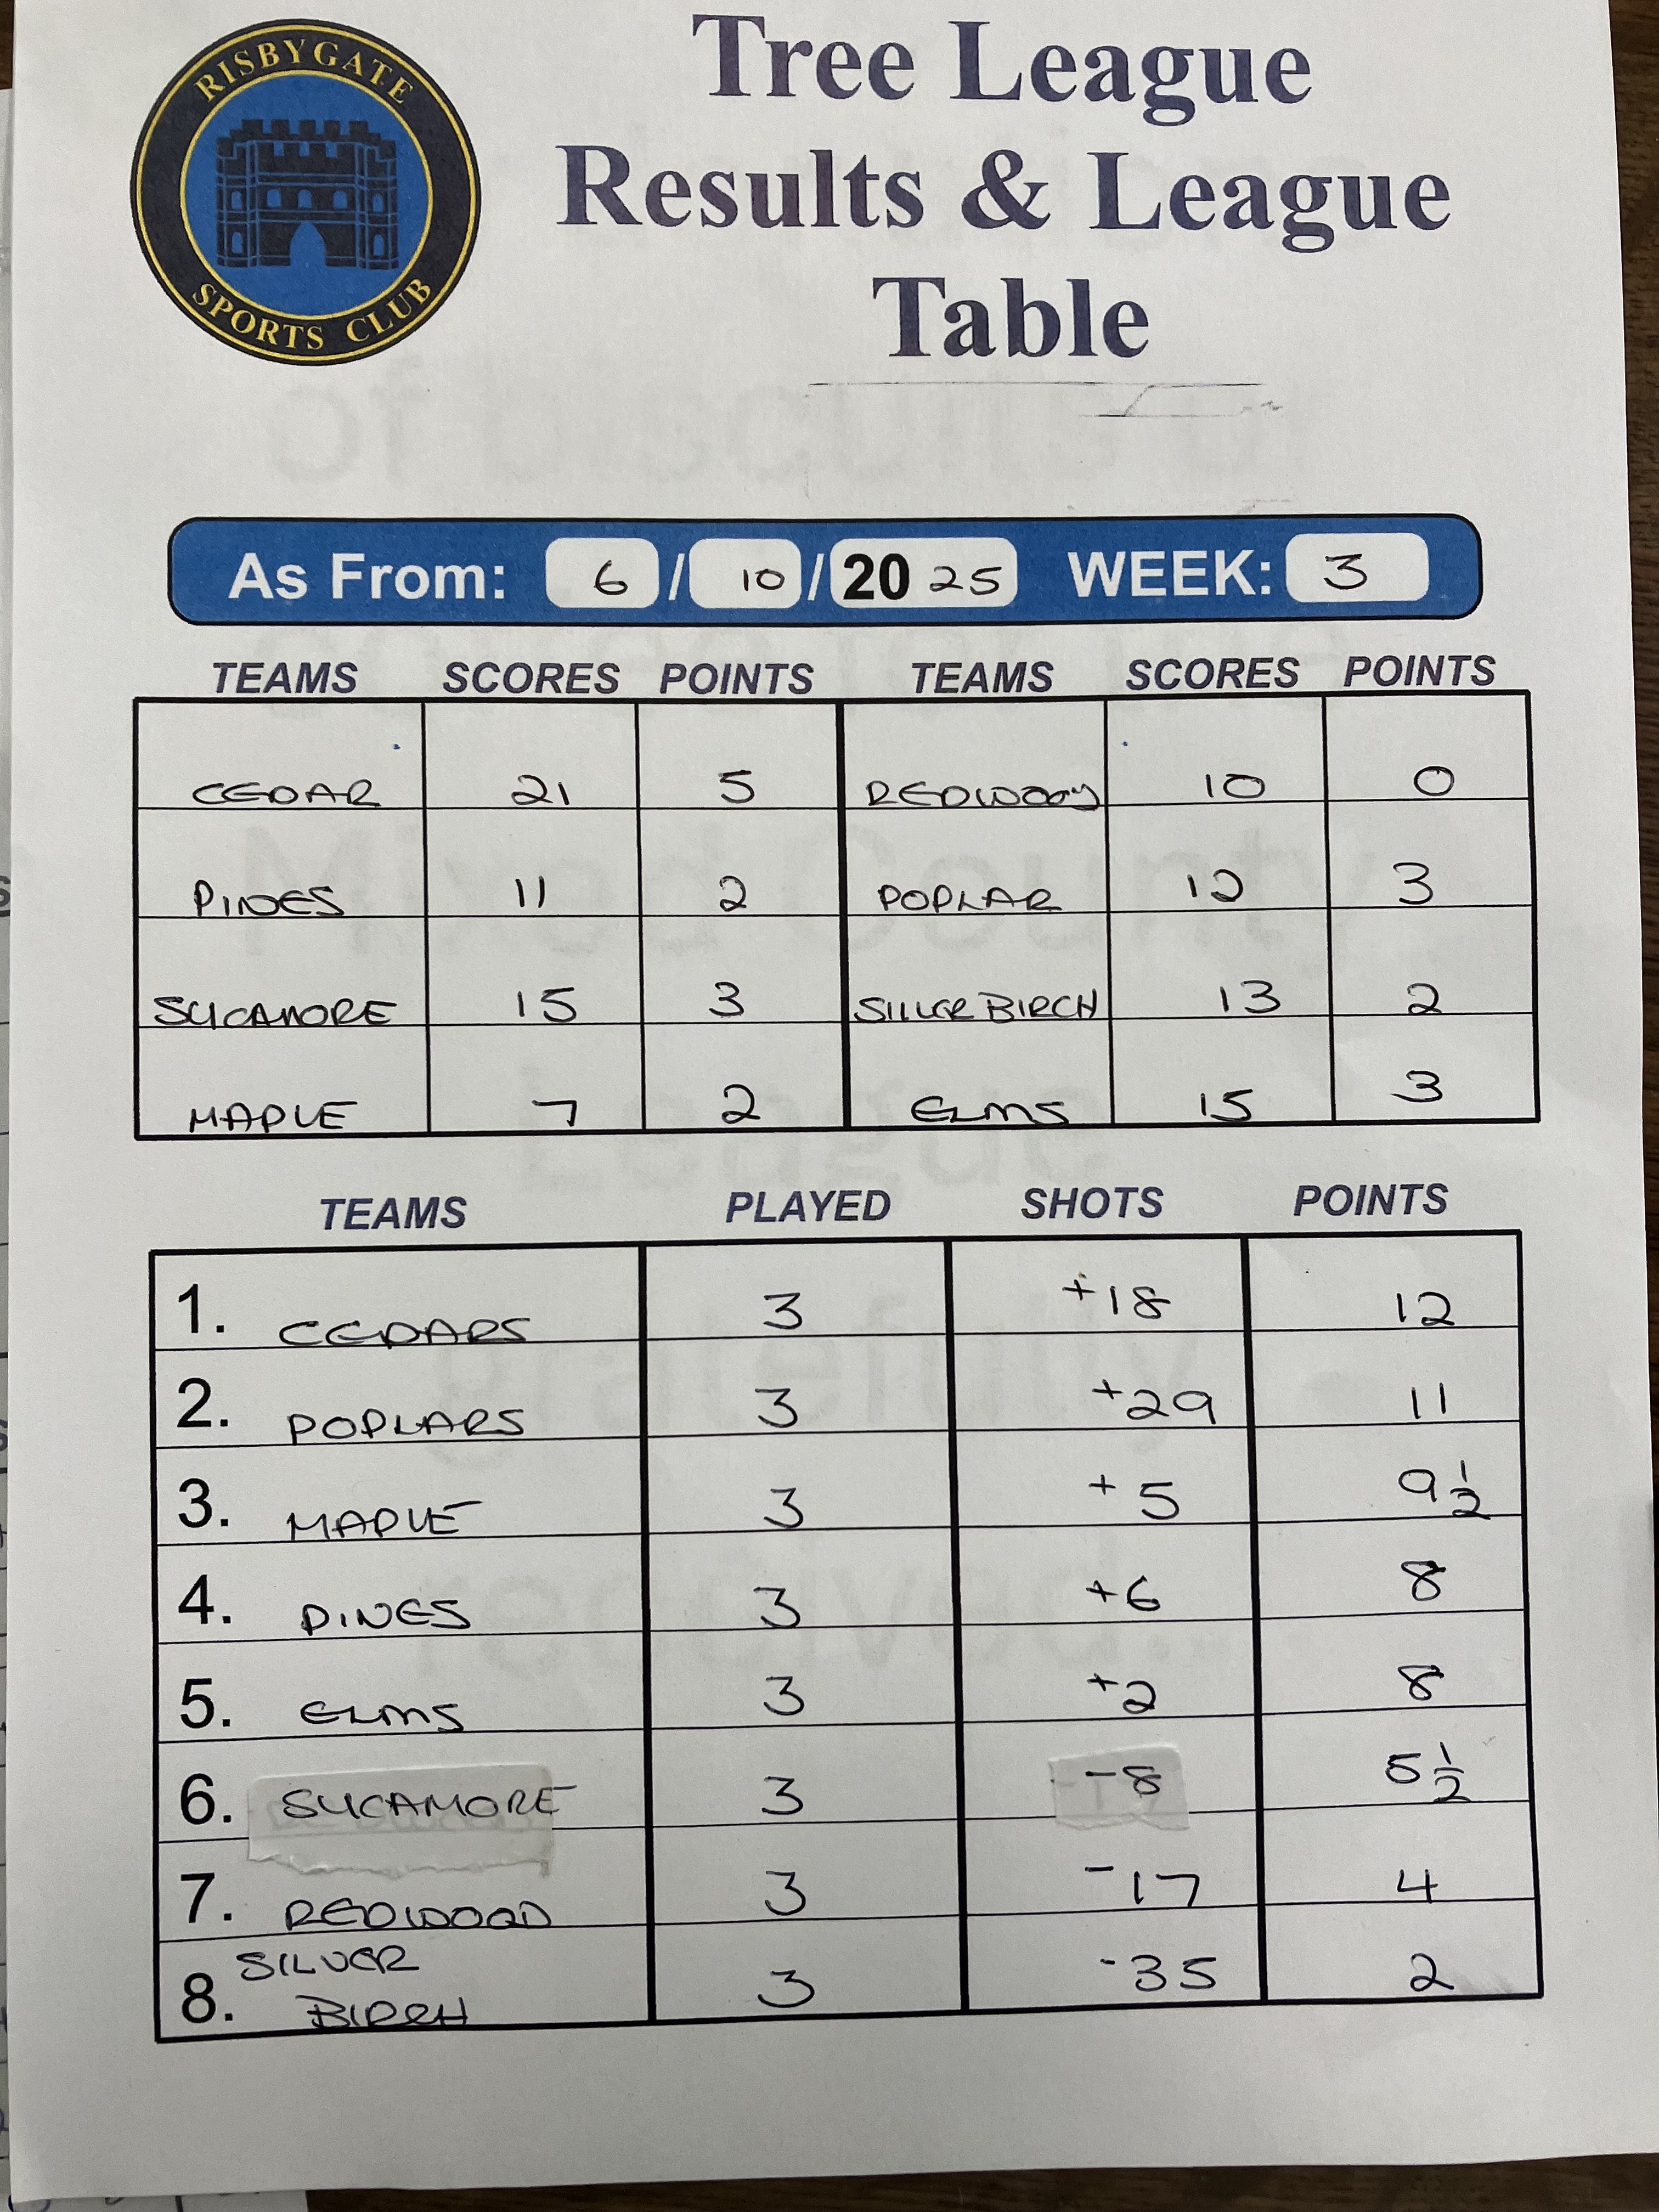 RISBYGATE
SPORTS CLUB
Tree League
Results & League
Table
As From: 6 / 10 / 20 25 WEEK: 3
TEAMS SCORES POINTS TEAMS SCORES POINTS
CEDAR 21 5 REDWOOD 10 0
PINES 11 2 POPLAR 12 3
SYCAMORE 15 3 SILVER BIRCH 13 2
MAPLE 7 2 ELMS 15 3
TEAMS PLAYED SHOTS POINTS
1. CEDARS 3 +18 12
2. POPLARS 3 +29 11
3. MAPLE 3 +5 9 1/2
4. PINES 3 +6 8
5. ELMS 3 +2 8
6. SYCAMORE 3 -8 5 1/2
7. REDWOOD 3 -17 4
8. SILVER BIRCH 3 -35 2